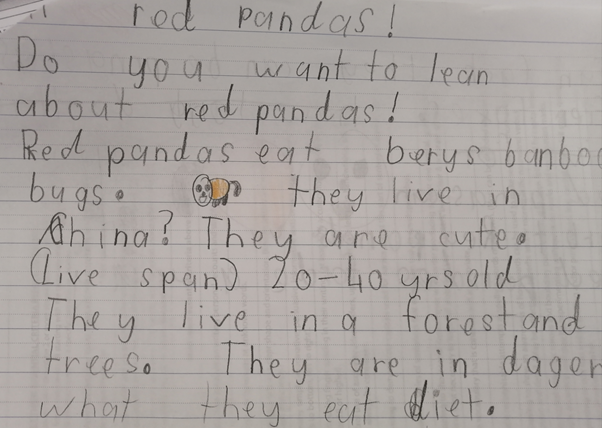 red pandas!
Do you want to lean
about red pandas!
Red pandas eat berys banboo
bugs. they live in
China? They are cute.
(Live span) 20-40 yrs old
They live in a forest and
trees. They are in dager
what they eat diet.